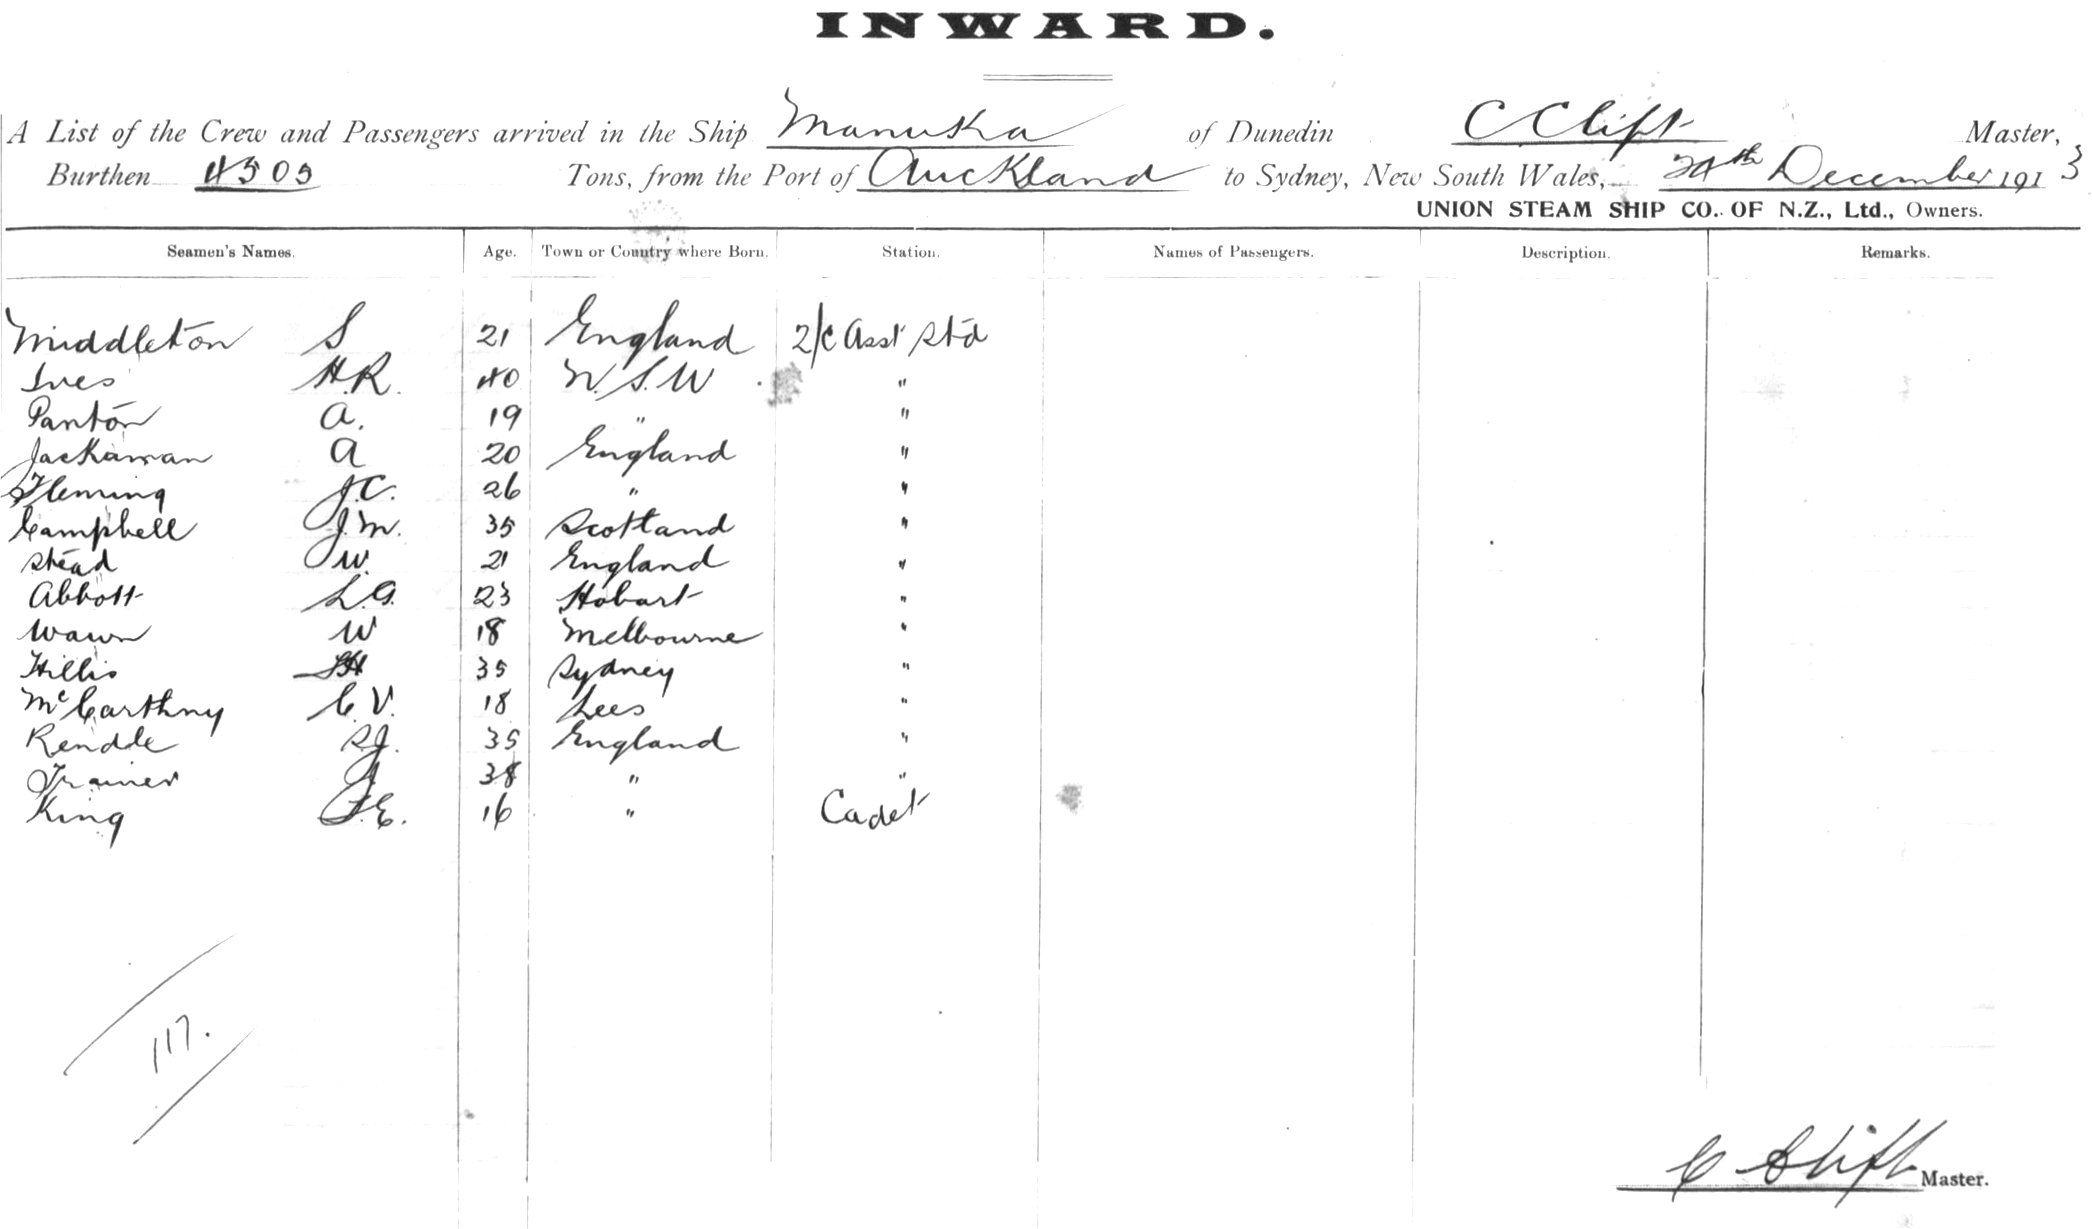 INWARD.
A List of the Crew and Passengers arrived in the Ship Manuka of Dunedin C Clift Master,
Burthen 4505 Tons, from the Port of Auckland to Sydney, New South Wales, 24th December 1913
UNION STEAM SHIP CO. OF N.Z., Ltd., Owners.
Seamen's Names. Age. Town or Country where Born. Station. Names of Passengers. Description. Remarks.
Middleton S 21 England 2/c Asst Std
Ives H.R. 40 N.S.W "
Panton A. 19 " "
Jackaman A 20 England "
Fleming J.C. 26 " "
Campbell J.M. 35 Scotland "
Stead W. 21 England "
Abbott L.G. 23 Hobart "
Wawn W 18 Melbourne "
Hillis 35 Sydney "
McCarthny C.V. 18 Lees "
Rendle S.J. 35 England "
Trainer J. 38 " "
King F.E. 16 " Cadet
117.
C Clift Master.